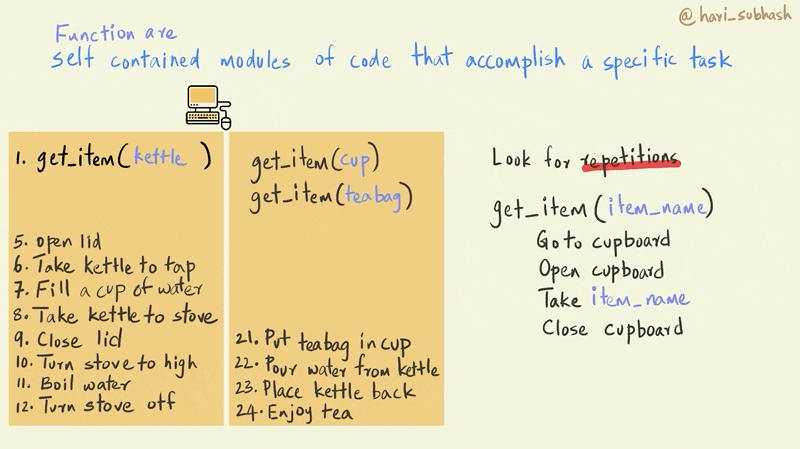 @hari_subhash
Function are
self contained modules of code that accomplish a specific task
1. get_item(kettle )
5. open lid
6. Take kettle to tap
7. Fill a cup of water
8. Take kettle to stove
9. Close lid
10. Turn stove to high
11. Boil water
12. Turn stove off
get_item(cup)
get_item(teabag)
21. Put teabag in cup
22. Pour water from kettle
23. Place kettle back
24. Enjoy tea
Look for repetitions
get_item(item_name)
Go to cupboard
Open cupboard
Take item_name
Close cupboard